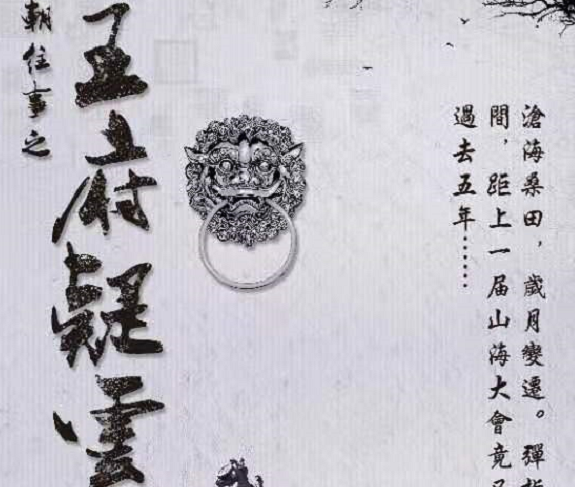 滄海桑田，歲月變遷。彈指
間，距上一届山海大會竟
過去五年……
王府疑雲
朝往事之